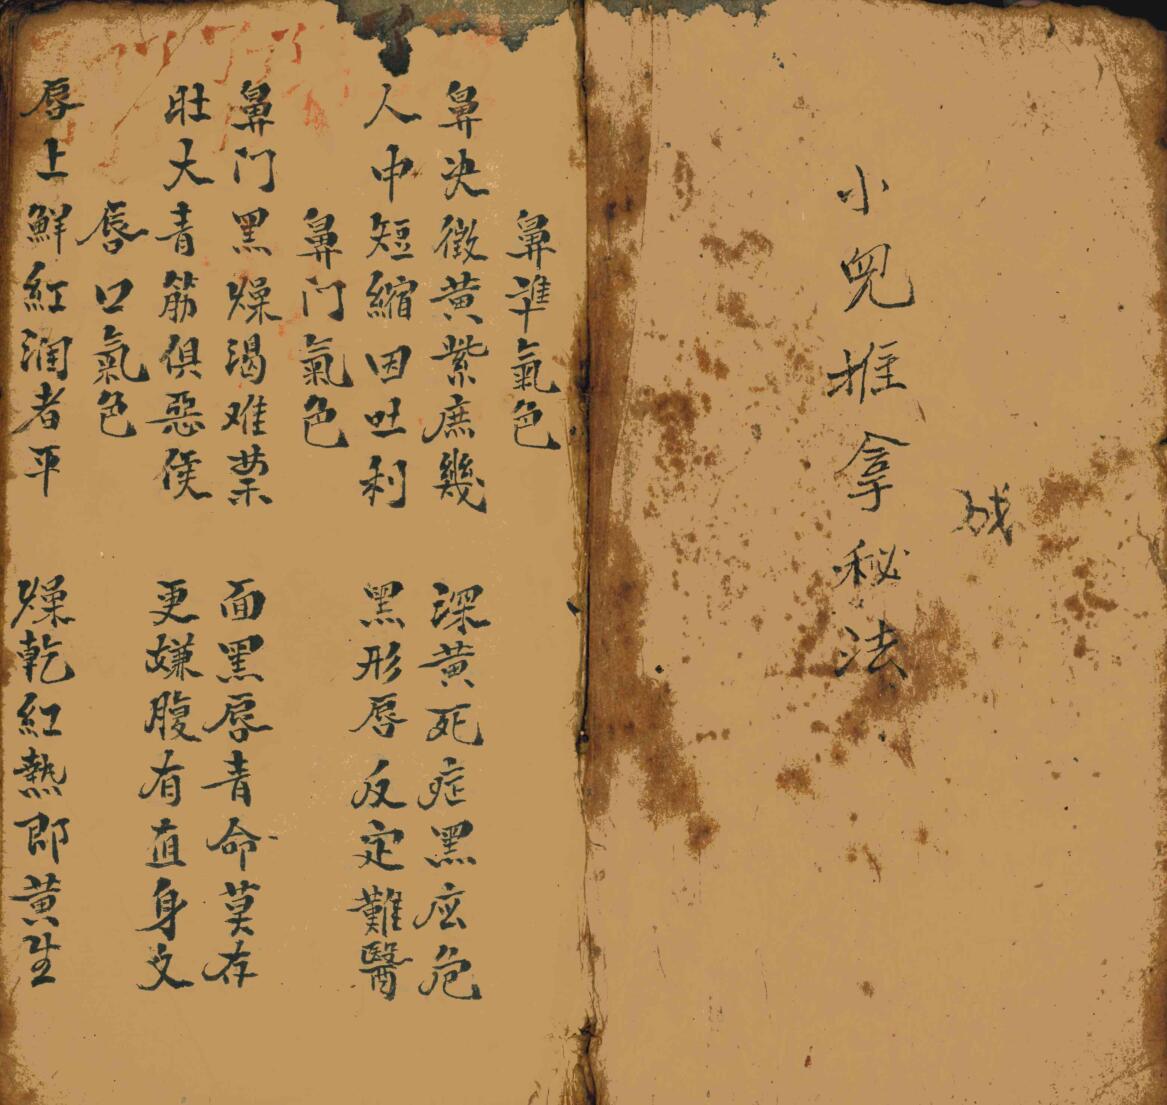 小兒推拿秘法
鼻準氣色
鼻决微黃紫庶幾 深黃死症黑应危
人中短縮因吐利 黑形唇反定難醫
鼻门氣色
鼻门黑燥渴难禁 面黑唇青命莫存
肚大青筋俱惡候 更嫌腹有直身文
唇口氣色
唇上鮮紅润者平 燥乾紅熱即黃生